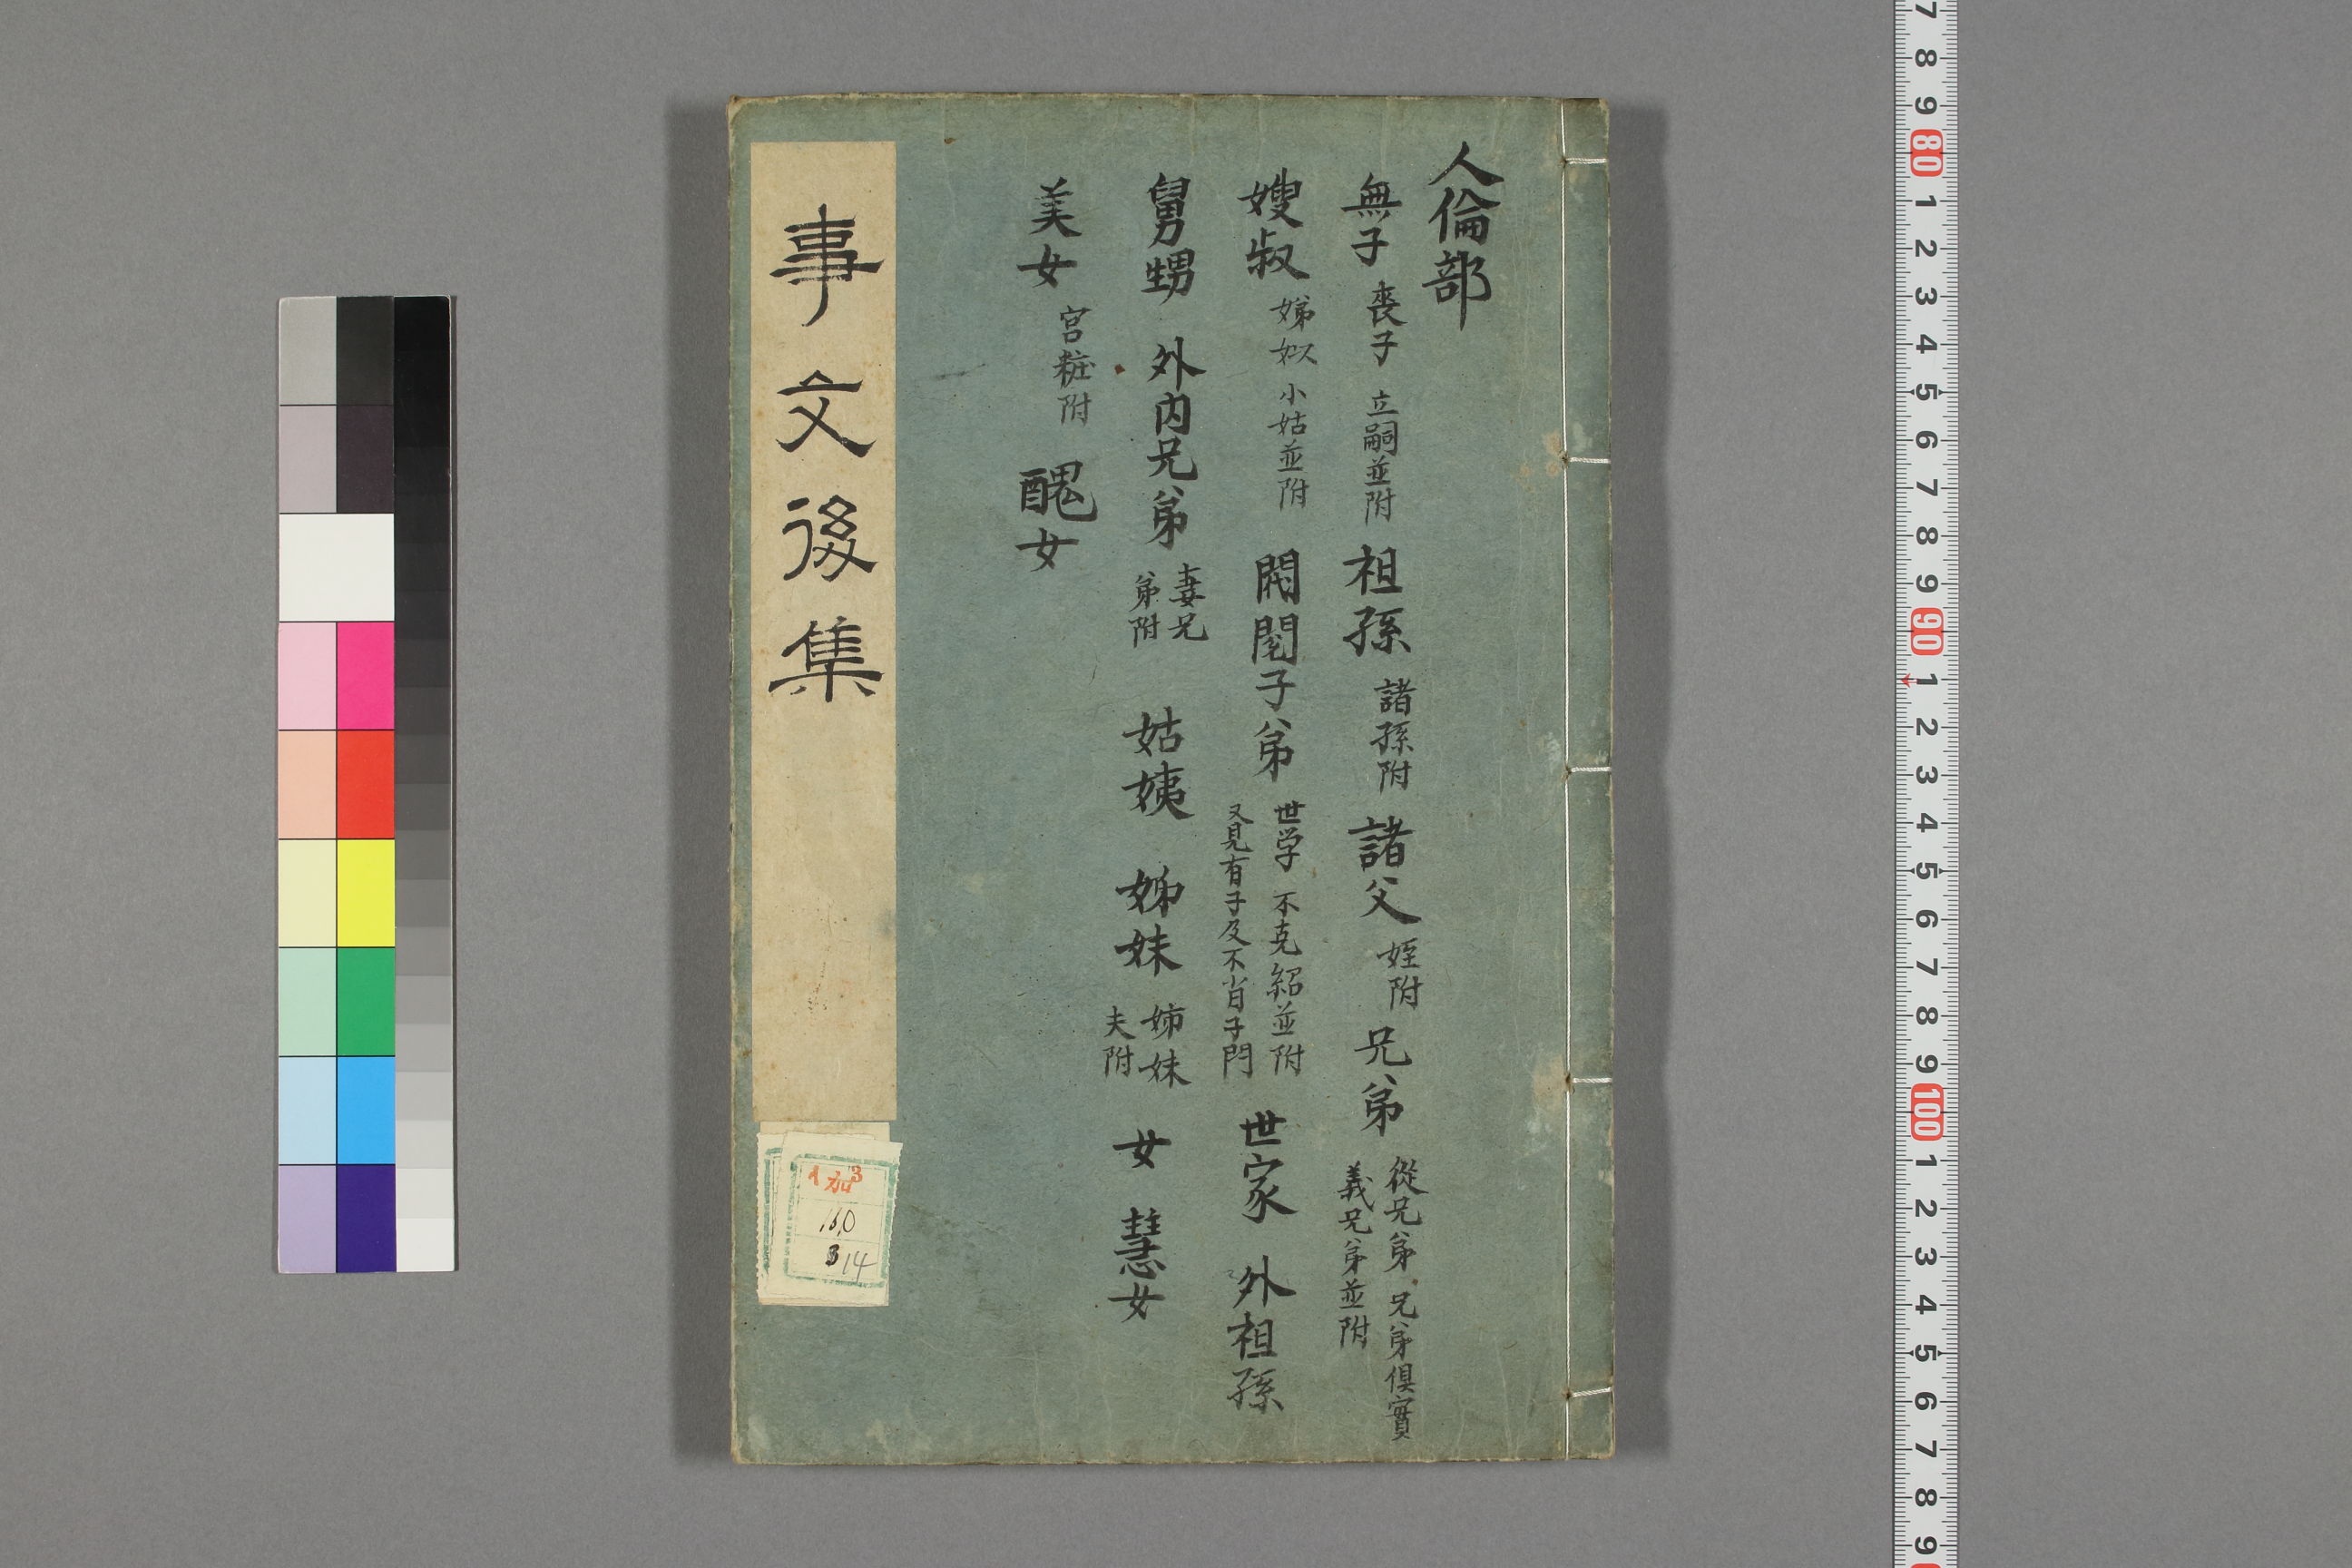 人倫部
無子 喪子 立嗣並附 祖孫 諸孫附 諸父 姪附 兄弟 從兄弟 兄弟俱實 義兄弟並附
嫂叔 娣姒 小姑並附 閥閱子弟 世学 不克紹並附 又見有子及不肖子門 世家 外祖孫
舅甥 外内兄弟 妻兄弟附 姑姨 姊妹 姉妹夫附 女 慧女
美女 宮粧附 醜女
事文後集
1加3
160
314
7 8 9 80 1 2 3 4 5 6 7 8 9 90 1 2 3 4 5 6 7 8 9 100 1 2 3 4 5 6 7 8 9